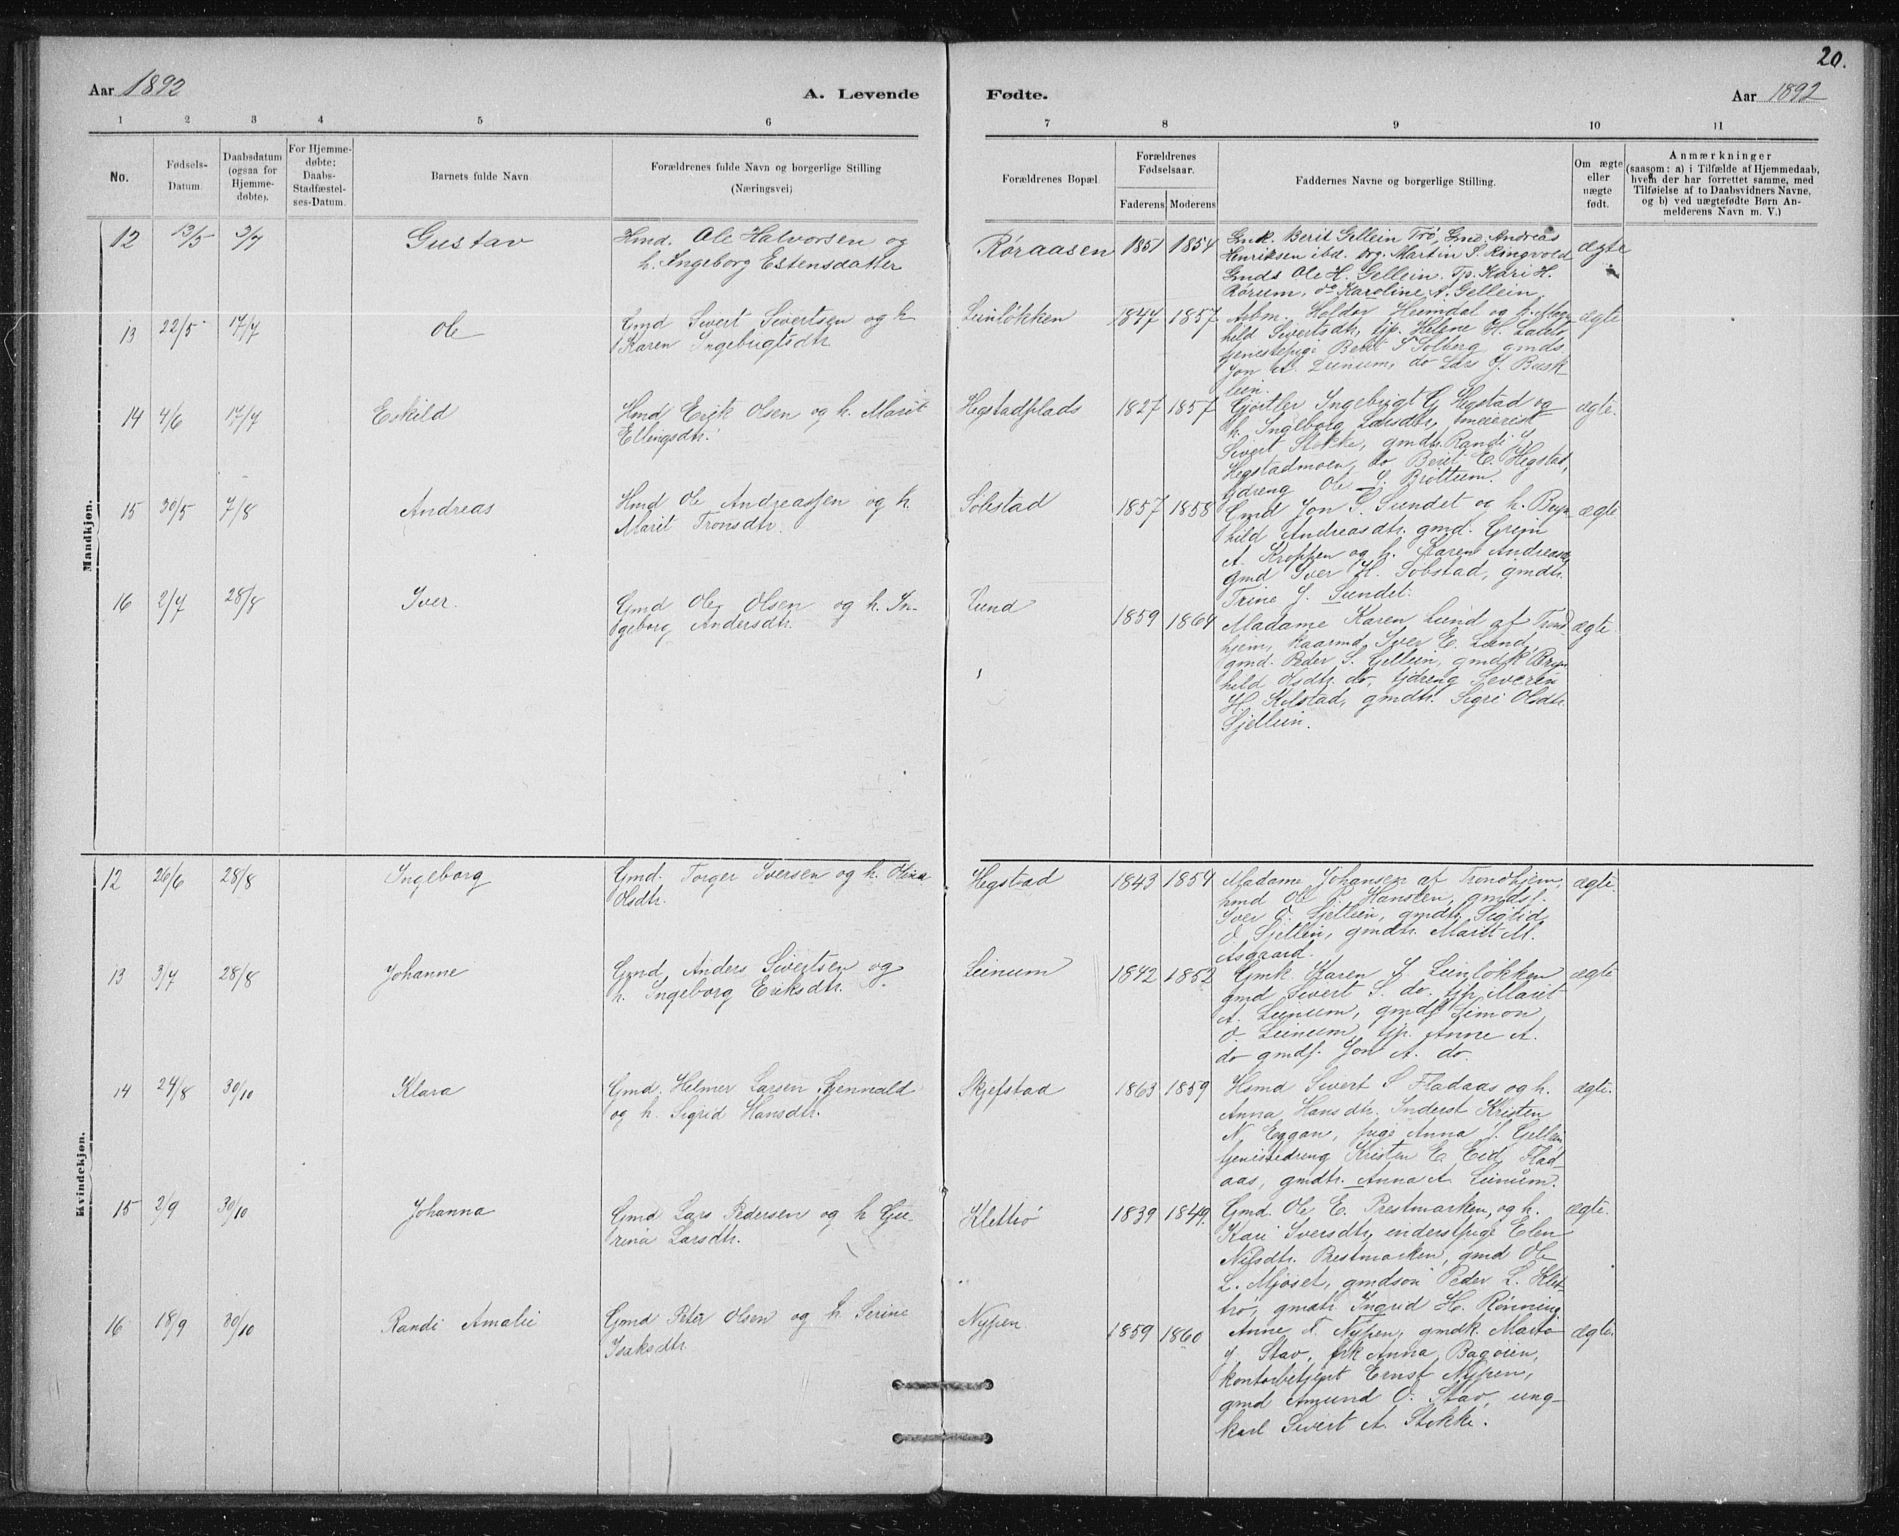 20.
Aar 1892
A. Levende
Fødte.
Aar 1892
1 2 3 4 5 6 7 8 9 10 11
No.
Fødsels-
Datum.
Daabsdatum
(ogsaa for
Hjemme-
døbte).
For Hjemme-
døbte:
Daabs-
Stadfæstel-
ses-Datum.
Barnets fulde Navn
Forældrenes fulde Navn og borgerlige Stilling
(Næringsvei).
Forældrenes Bopæl.
Forældrenes
Fødselsaar.
Faderens Moderens
Faddernes Navne og borgerlige Stilling.
Om ægte
eller
uægte
født.
Anmærkninger
(saasom: a) i Tilfælde af Hjemmedaab,
hvem der har forrettet samme, med
Tilføielse af to Daabsvidners Navne,
og b) ved uægtefødte Børn An-
melderens Navn m. V.)
Mandkjøn.
12 13/5 3/7 Gustav
Hmd. Ole Halvorsen og
h. Ingeborg Estensdatter
Røraasen 1851 1854
Gmk. Berit Gellein Trø, Gmd. Andreas
Henriksen ibd. Martin S. Ringvold
Gmds Ole H. Gellein. Tp. Kari H.
Rørum, do Karoline A. Gellein
ægte
13 22/5 17/7 Ole
Gmd Sivert Sivertsen og h
Karen Ingebrigtsdtr
Leinløkken 1847 1857
Arbm. Holder Heimdal og h.
hild Sivertsdtr, tjp. Helene H.
tjenestepige Berit S Solberg gmds
Jon A. Leinum, do Lars J. Rusk-
lein.
ægte
14 4/6 17/7 Eskild
Hmd Erik Olsen og h. Marit
Ellingsdtr.
Hegstadplads 1827 1857
Ingebrigt G Hegstad og
h. Ingeborg Larsdtr, meierist
Sivert Stokke, gmdtr. Randi J.
Hegstadmoen, do Berit E. Hegstad,
tjdreng Ole J. Brøttum.
ægte.
15 30/5 7/8 Andreas
Hmd Ole Andreassen og h
Marit Tronsdtr.
Sobstad 1857 1858
Gmd Jon S. Sundet og h. Bryn-
hild Andreasdtr. gmd. Grim
A. Kroppen og h. Karen Andreasdtr
gmd Iver H. Sobstad, gmdtr.
Trine J. Sundet.
ægte
16 2/7 28/8 Iver.
Gmd Ole Olsen og h. In-
geborg Andersdtr.
Lund 1859 1864
Madame Karen Lund af Trond-
hjem, kaarmd Iver E. Lund,
gmd. Peder S. Gellein, gmdk Bryn-
hild Olsdtr. do, tjdreng Severin
H Kolstad, gmdtr. Sigri Olsdtr
Sjellein.
ægte.
Kvindekjøn.
12 26/6 28/8 Ingeborg
Gmd. Torger Iversen og h. Olina
Olsdtr.
Hegstad 1843 1854
Madame Johansen af Trondhjem,
hmd Ole P. Hansten, gmds.
Iver O. Sjellein, gmdtr. Sigrid
O. Sjellein, gmdtr. Marit M.
Aasgaard.
ægte.
13 3/7 28/8 Johanne
Gmd, Anders Sivertsen og
h. Ingeborg Eriksdtr.
Leinum 1842 1852
Gmk. Karen J. Leinløkken
gmd Sivert S. do. tjp. Marit
A. Leinum, gmds Simon
O. Leinum, tjp. Anne A.
do gmds. Jon A. do.
ægte
14 24/8 30/10 Klara
Gmd. Helmer Larsen Tjenvald
og h. Sigrid Hansdtr.
Skjefstad 1863 1859
Hsmd Sivert S Fladaas og h.
Anna Hansdtr. Inderst Kristen
N. Eggan, pige Anna J. Gellein
tjenestedreng Kristen E Eid, Flad-
aas, gmdtr. Anna A. Leinum.
ægte.
15 2/9 30/10 Johanna
Gmd Lars Pedersen og h Gu-
rina Larsdtr.
Klettrø 1839 1849.
Gmd. Ole E. Prestmarken, og h.
Kari Iversdtr, inderstpige Elen
Nilsdtr. Prestmarken, gmd Ole
L. Mjøset, gmdsøn Peder L. Klet-
trø, gmdtr. Ingrid H. Rønning
ægte.
16 18/9 30/10 Randi Amalie
Gmd Peter Olsen og h. Serine
Isaksdtr.
Nypen 1859 1860
Anne T. Nypen, gmdk. Marta
J. Stav, frk Anna Bagøien,
kontorbetjent Ernst Nypen,
gmd Amund O. Stav, ung-
karl Sivert A. Stokke.
ægte.